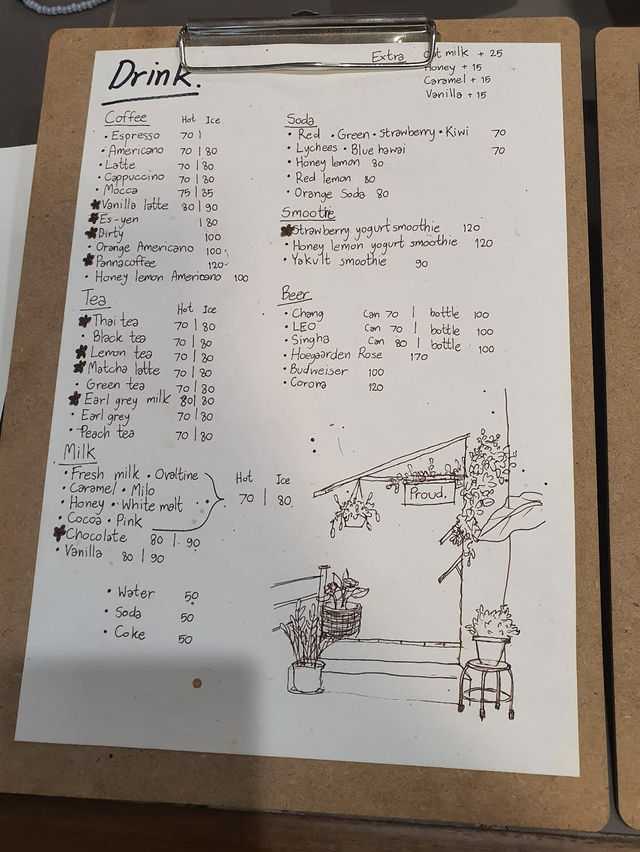 Drink.
Extra Oat milk + 25
Honey + 15
Caramel + 15
Vanilla + 15
Coffee Hot Ice
• Espresso 70 |
• Americano 70 | 80
• Latte 70 | 80
• Cappuccino 70 | 80
• Mocca 75 | 85
Vanilla latte 80 | 90
Es-yen | 80
Dirty 100
• Orange Americano 100
Pannacoffee 120
• Honey lemon Americano 100
Tea Hot Ice
Thai tea 70 | 80
• Black tea 70 | 80
Lemon tea 70 | 80
Matcha latte 70 | 80
• Green tea 70 | 80
Earl grey milk 80 | 80
• Earl grey 70 | 80
• Peach tea 70 | 80
Milk
• Fresh milk • Ovaltine
• Caramel • Milo
• Honey • White malt
• Cocoa • Pink
Hot Ice
70 | 80
Chocolate 80 | 90
• Vanilla 80 | 90
• Water 50
• Soda 50
• Coke 50
Soda
• Red • Green • Strawberry • Kiwi 70
• Lychees • Blue hawai 70
• Honey lemon 80
• Red lemon 80
• Orange Soda 80
Smootie
Strawberry yogurt smoothie 120
• Honey lemon yogurt smoothie 120
• Yakult smoothie 90
Beer
• Chang Can 70 | bottle 100
• LEO Can 70 | bottle 100
• Singha Can 80 | bottle 100
• Hoegaarden Rose 170
• Budweiser 100
• Corona 120
Proud.